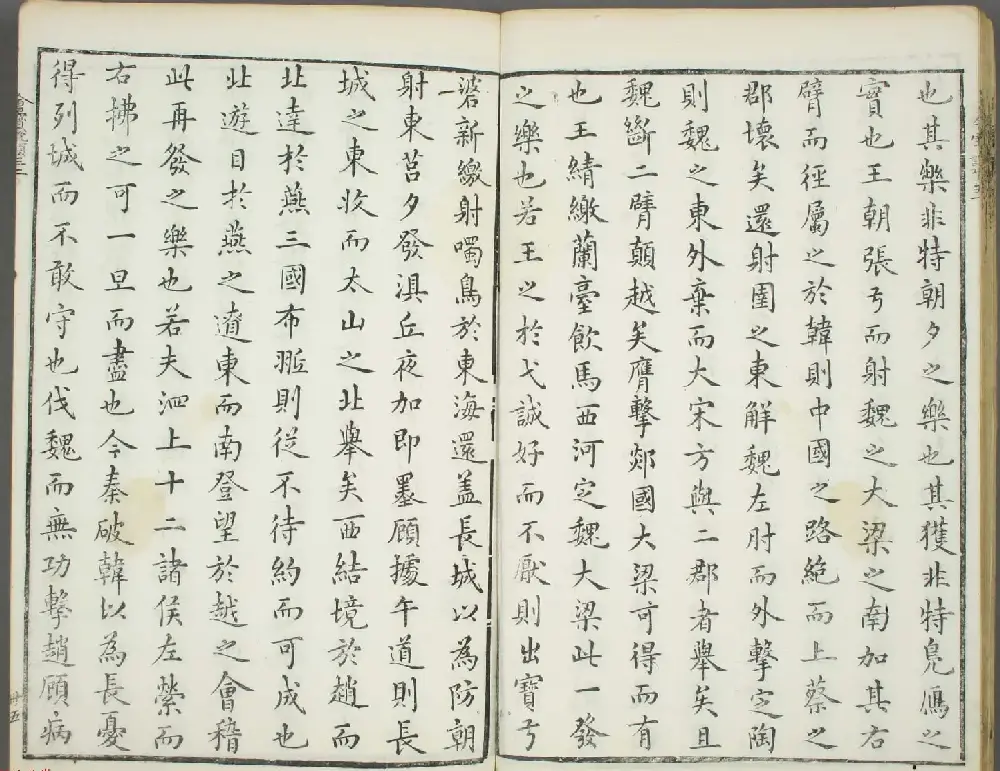 也其樂非特朝夕之樂也其獲非特鳧鴈之
實也王朝張弓而射魏之大梁之南加其右
臂而徑屬之於韓則中國之路絶而上蔡之
郡壞矣還射圉之東解魏左肘而外擊定陶
則魏之東外棄而大宋方與二郡者舉矣且
魏斷二臂顛越矣膺擊郯國大梁可得而有
也王綪繳蘭臺飲馬西河定魏大梁此一發
之樂也若王之於弋誠好而不厭則出寶弓
碆新繳射噣鳥於東海還盖長城以為防朝
射東莒夕發浿丘夜加即墨顧據午道則長
城之東收而太山之北舉矣西結境於趙而
北達於燕三國布𦐂則從不待約而可成也
北遊目於燕之遼東而南登望於越之會稽
此再發之樂也若夫泗上十二諸侯左縈而
右拂之可一旦而盡也今秦破韓以為長憂
得列城而不敢守也伐魏而無功擊趙顧病
卅五